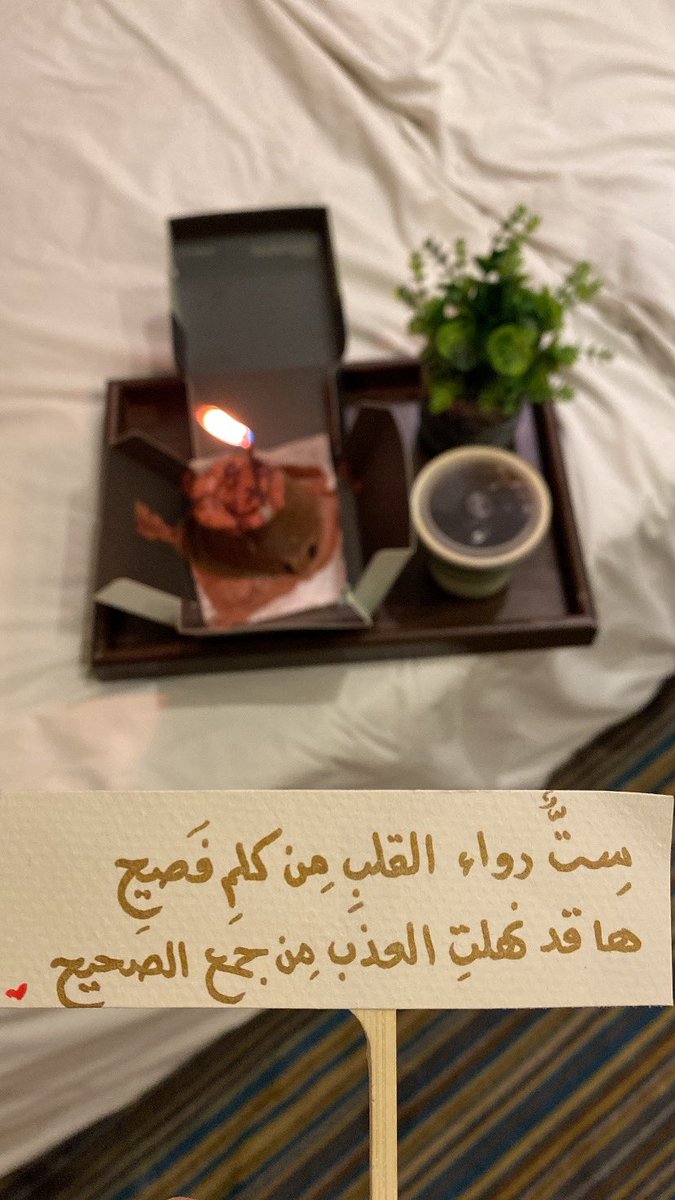 سِتٌّ رواء القلبِ مِن كلمِ فَصيحِ
ها قد نهلتِ العذبَ مِن جمعِ الصحيح